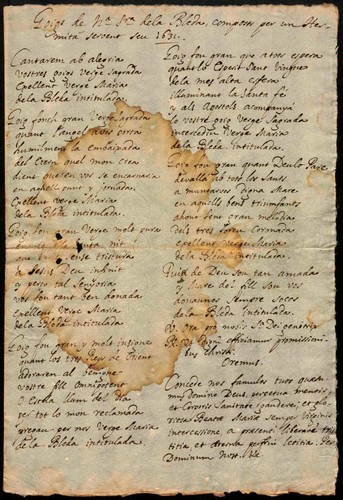 Goigs de Nª Sra dela Bleda, composts per un Her-
mita servent seu 1632.
Cantarem ab alegria
vostres goigs Verge Sagrada
Exellent Verge Maria
dela Bleda intitulada.
Goig fonch gran Verge Sagrada
quant l'angel
humilment la embaixada
del Etern quel mon crea
dient que en vos se encarnaria
en aquell punt y jornada,
Exellent Verge Maria
dela Bleda intitulada.
Goig fou gran Verge molt pura
nit
tristura
a Jesus Deu infinit
y perso tal
vos fou tant ben donada
Exellent Verge Maria
dela Bleda intitulada.
Goig fou gran y molt insigne
quant los tres Reys de Orient
adoraren al benigne
vostre fill Omnipotent
O Estela llum del dia
per tot lo mon reclamada
pregau per nos Verge Maria
de la Bleda intitulada.
Goig fou gran que a tres espera
quant lo Esperit Sant vingue
dela mes alta esfera
illuminant la Santa fe
y als Apostols acompanya
lo vostre goig Verge Sagrada
intercediu Verge Maria
dela Bleda Intitulada.
Goig fou gran quant Deu lo Pare
devalla ab tot los Sants
a muntarvos Digna Mare
en aquells bens triumfants
ahont sou gran melodia
dels tres foreu Coronada
exellent Verge Maria
dela Bleda intitulada.
Puix de Deu sou tan amada
y Mare del fill sou vos
donaunos sempre socos
dela Bleda Intitulada.
V. Ora pro nobis Sta Dei genitrix
R. Ut digni efficiamur promissioni-
bus Christi.
Oremus.
Concede nos famulos tuos quesu-
mus Domine Deus, perpetua mentis,
et Corporis Sanitate gaudere, et glo-
riosa Beate Marie Semper Virginis
intercessione, a presenti liberari tris-
titia, et eterna perfrui letitia. Per
Dominum Nrm. &c.